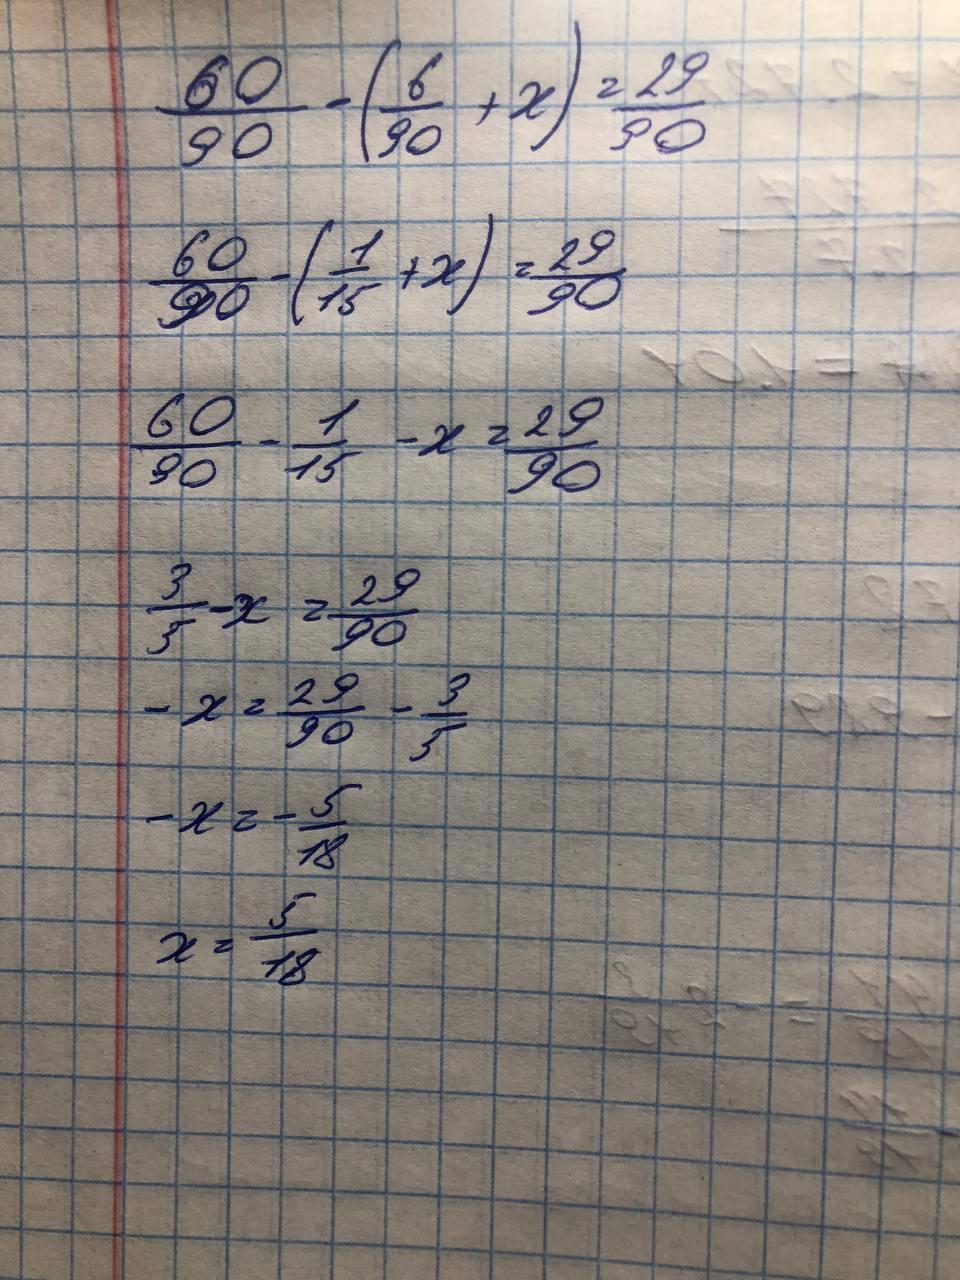 60/90 - (6/90 + x) = 29/90
60/90 - (1/15 + x) = 29/90
60/90 - 1/15 - x = 29/90
3/5 - x = 29/90
- x = 29/90 - 3/5
- x = - 5/18
x = 5/18